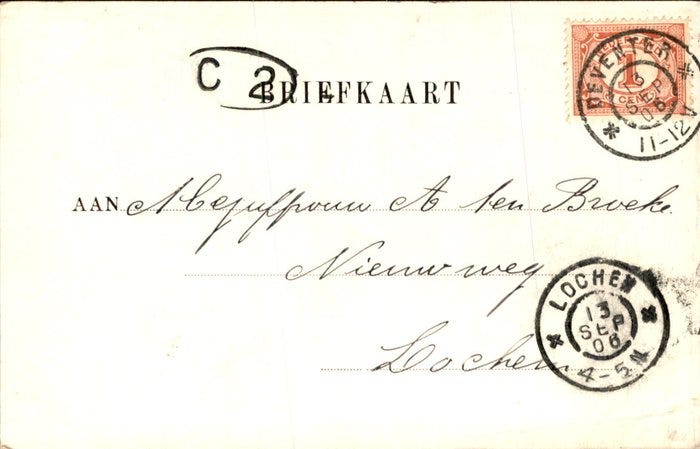 C 2
BRIEFKAART
1
CENT
DEVENTER
SEP
11-12V
AAN Mejuffrouw A ten Broeke
Nieuwweg
Lochem
LOCHEM
13 SEP 06
4-5N